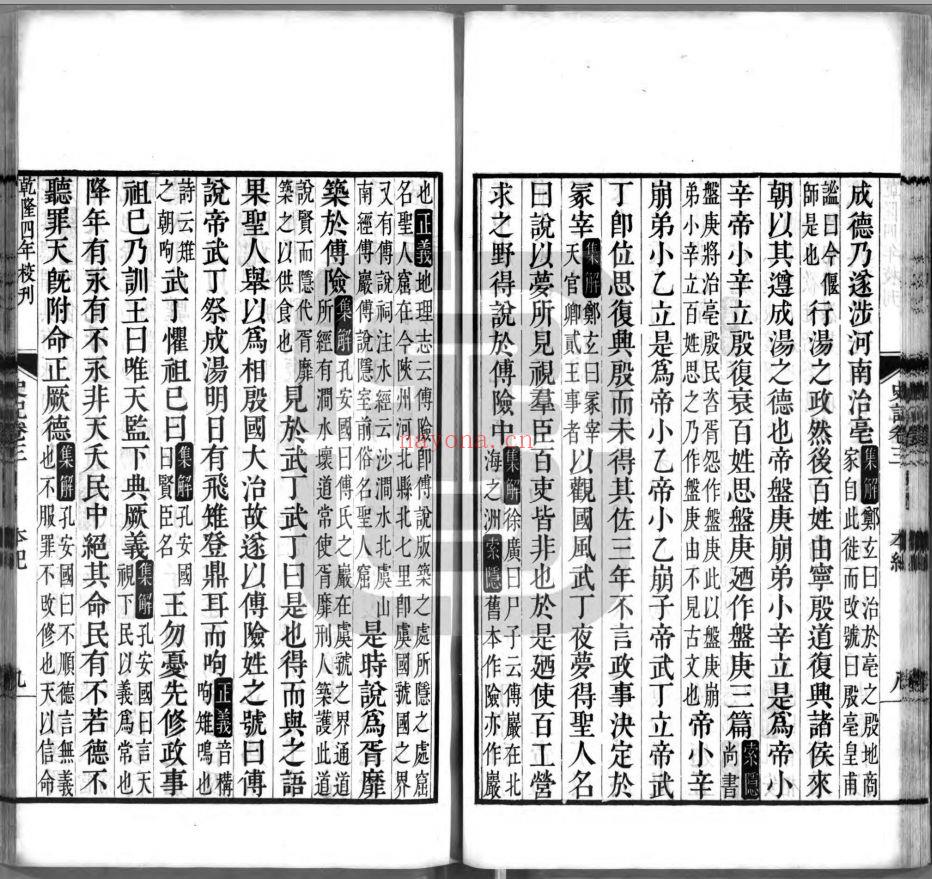 成德乃遂涉河南治亳集解鄭玄曰治於亳之殷地商家自此徙而改號曰殷亳皇甫
謐曰今偃師是也行湯之政然後百姓由寧殷道復興諸侯來
朝以其遵成湯之德也帝盤庚崩弟小辛立是爲帝小
辛帝小辛立殷復衰百姓思盤庚廼作盤庚三篇索隱尚書
盤庚將治亳殷民咨胥怨作盤庚此以盤庚崩弟小辛立百姓思之乃作盤庚由不見古文也帝小辛
崩弟小乙立是爲帝小乙帝小乙崩子帝武丁立帝武
丁卽位思復興殷而未得其佐三年不言政事決定於
冢宰集解鄭玄曰冢宰天官卿貳王事者以觀國風武丁夜夢得聖人名
曰說以夢所見視羣臣百吏皆非也於是廼使百工營
求之野得說於傅險中集解徐廣曰尸子云傅巖在北海之洲索隱舊本作險亦作巖
也正義地理志云傅險卽傅說版築之處所隱之處窟名聖人窟在今陝州河北縣北七里卽虞國虢國之界
又有傅說祠注水經云沙澗水北虞山南經傅巖傅說隱室前俗名聖人窟是時說爲胥靡
築於傅險集解孔安國曰傅氏之巖在虞虢之界通道所經有澗水壞道常使胥靡刑人築護此道
說賢而隱代胥靡築之以供食也見於武丁武丁曰是也得而與之語
果聖人舉以爲相殷國大治故遂以傅險姓之號曰傅
說帝武丁祭成湯明日有飛雉登鼎耳而呴正義音構呴雉鳴也
詩云雉之朝呴武丁懼祖已曰集解孔安國曰賢臣名王勿憂先修政事
祖已乃訓王曰唯天監下典厥義集解孔安國曰言天視下民以義爲常也
降年有永有不永非天夭民中絕其命民有不若德不
聽罪天旣附命正厥德集解孔安國曰不順德言無義也不服罪不改修也天以信命
乾隆四年校刊
史記卷三
本紀
八
九
nayona.cn